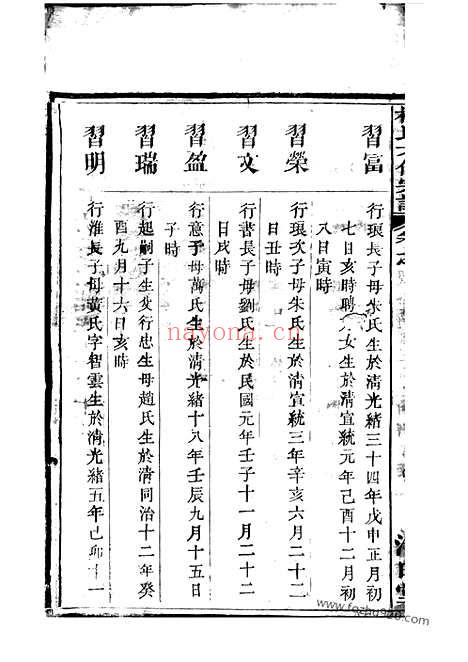 習富
行瓌長子母朱氏生於清光緒三十四年戊申正月初
七日亥時聘 女生於清宣統元年己酉十二月初
八日寅時
習榮
行瓌次子母朱氏生於清宣統三年辛亥六月二十二
日丑時
習文
行書長子母劉氏生於民國元年壬子十一月二十二
日戌時
習盈
行意子母萬氏生於清光緒十八年壬辰九月十五日
子時
習瑞
行起嗣子生父行忠生母趙氏生於清同治十二年癸
酉九月十六日亥時
習明
行淮長子母黃氏字智雲生於清光緒五年己卯十一
nayona.cn
www.fozhu920.com